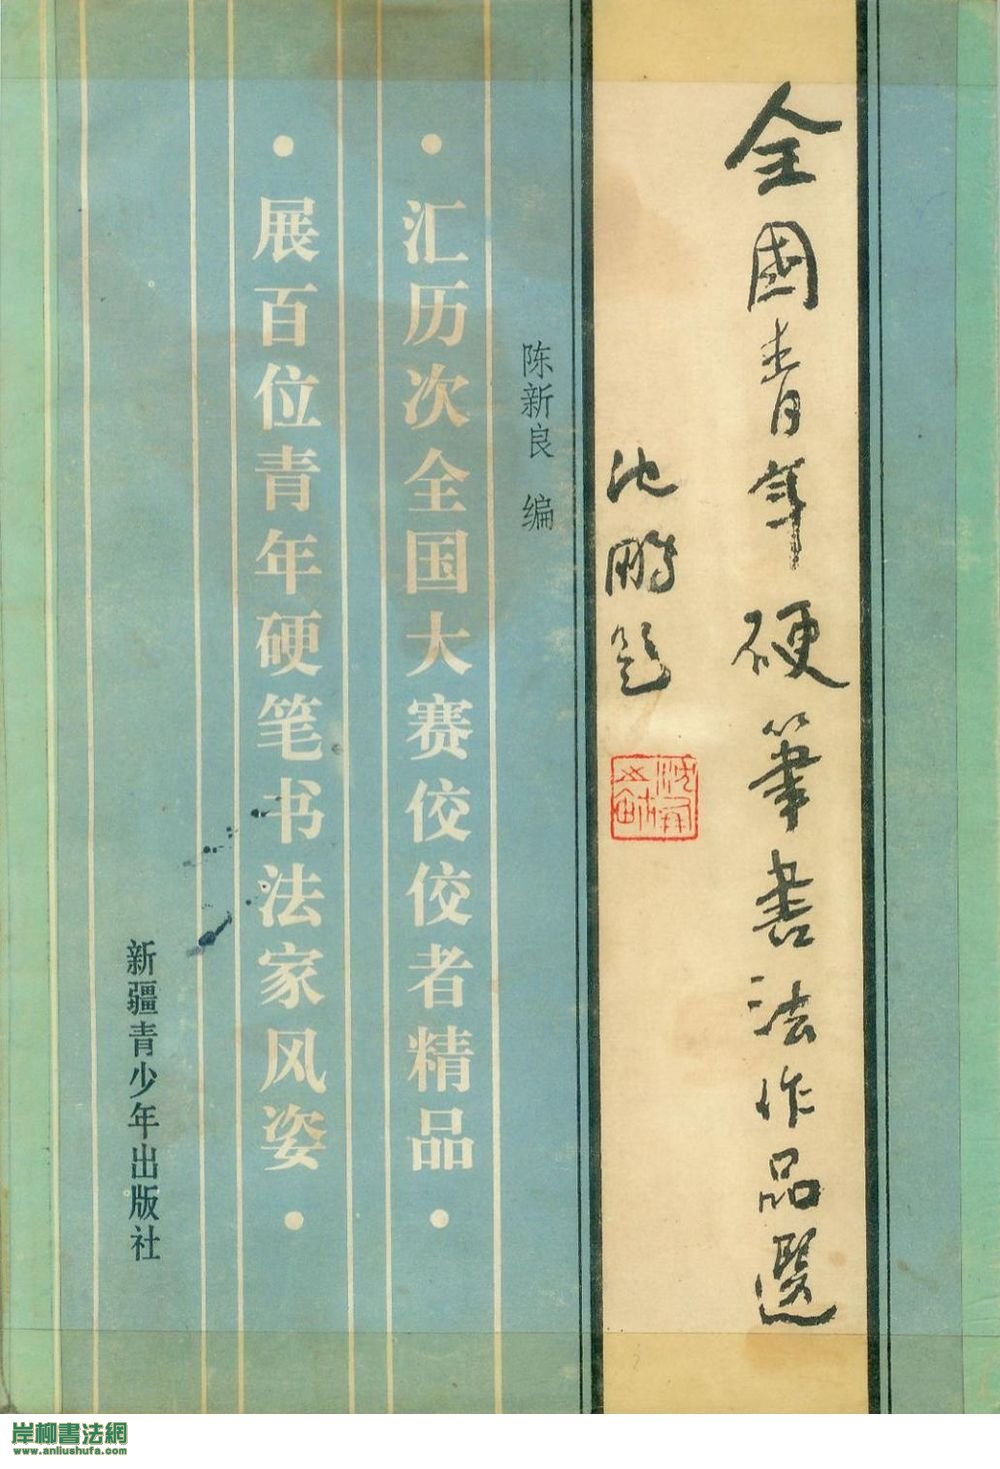 全國青年硬筆書法作品選
沈鹏题
陈新良 编
·汇历次全国大赛佼佼者精品·
·展百位青年硬笔书法家风姿·
新疆青少年出版社
岸柳書法網
www.anliushufa.com